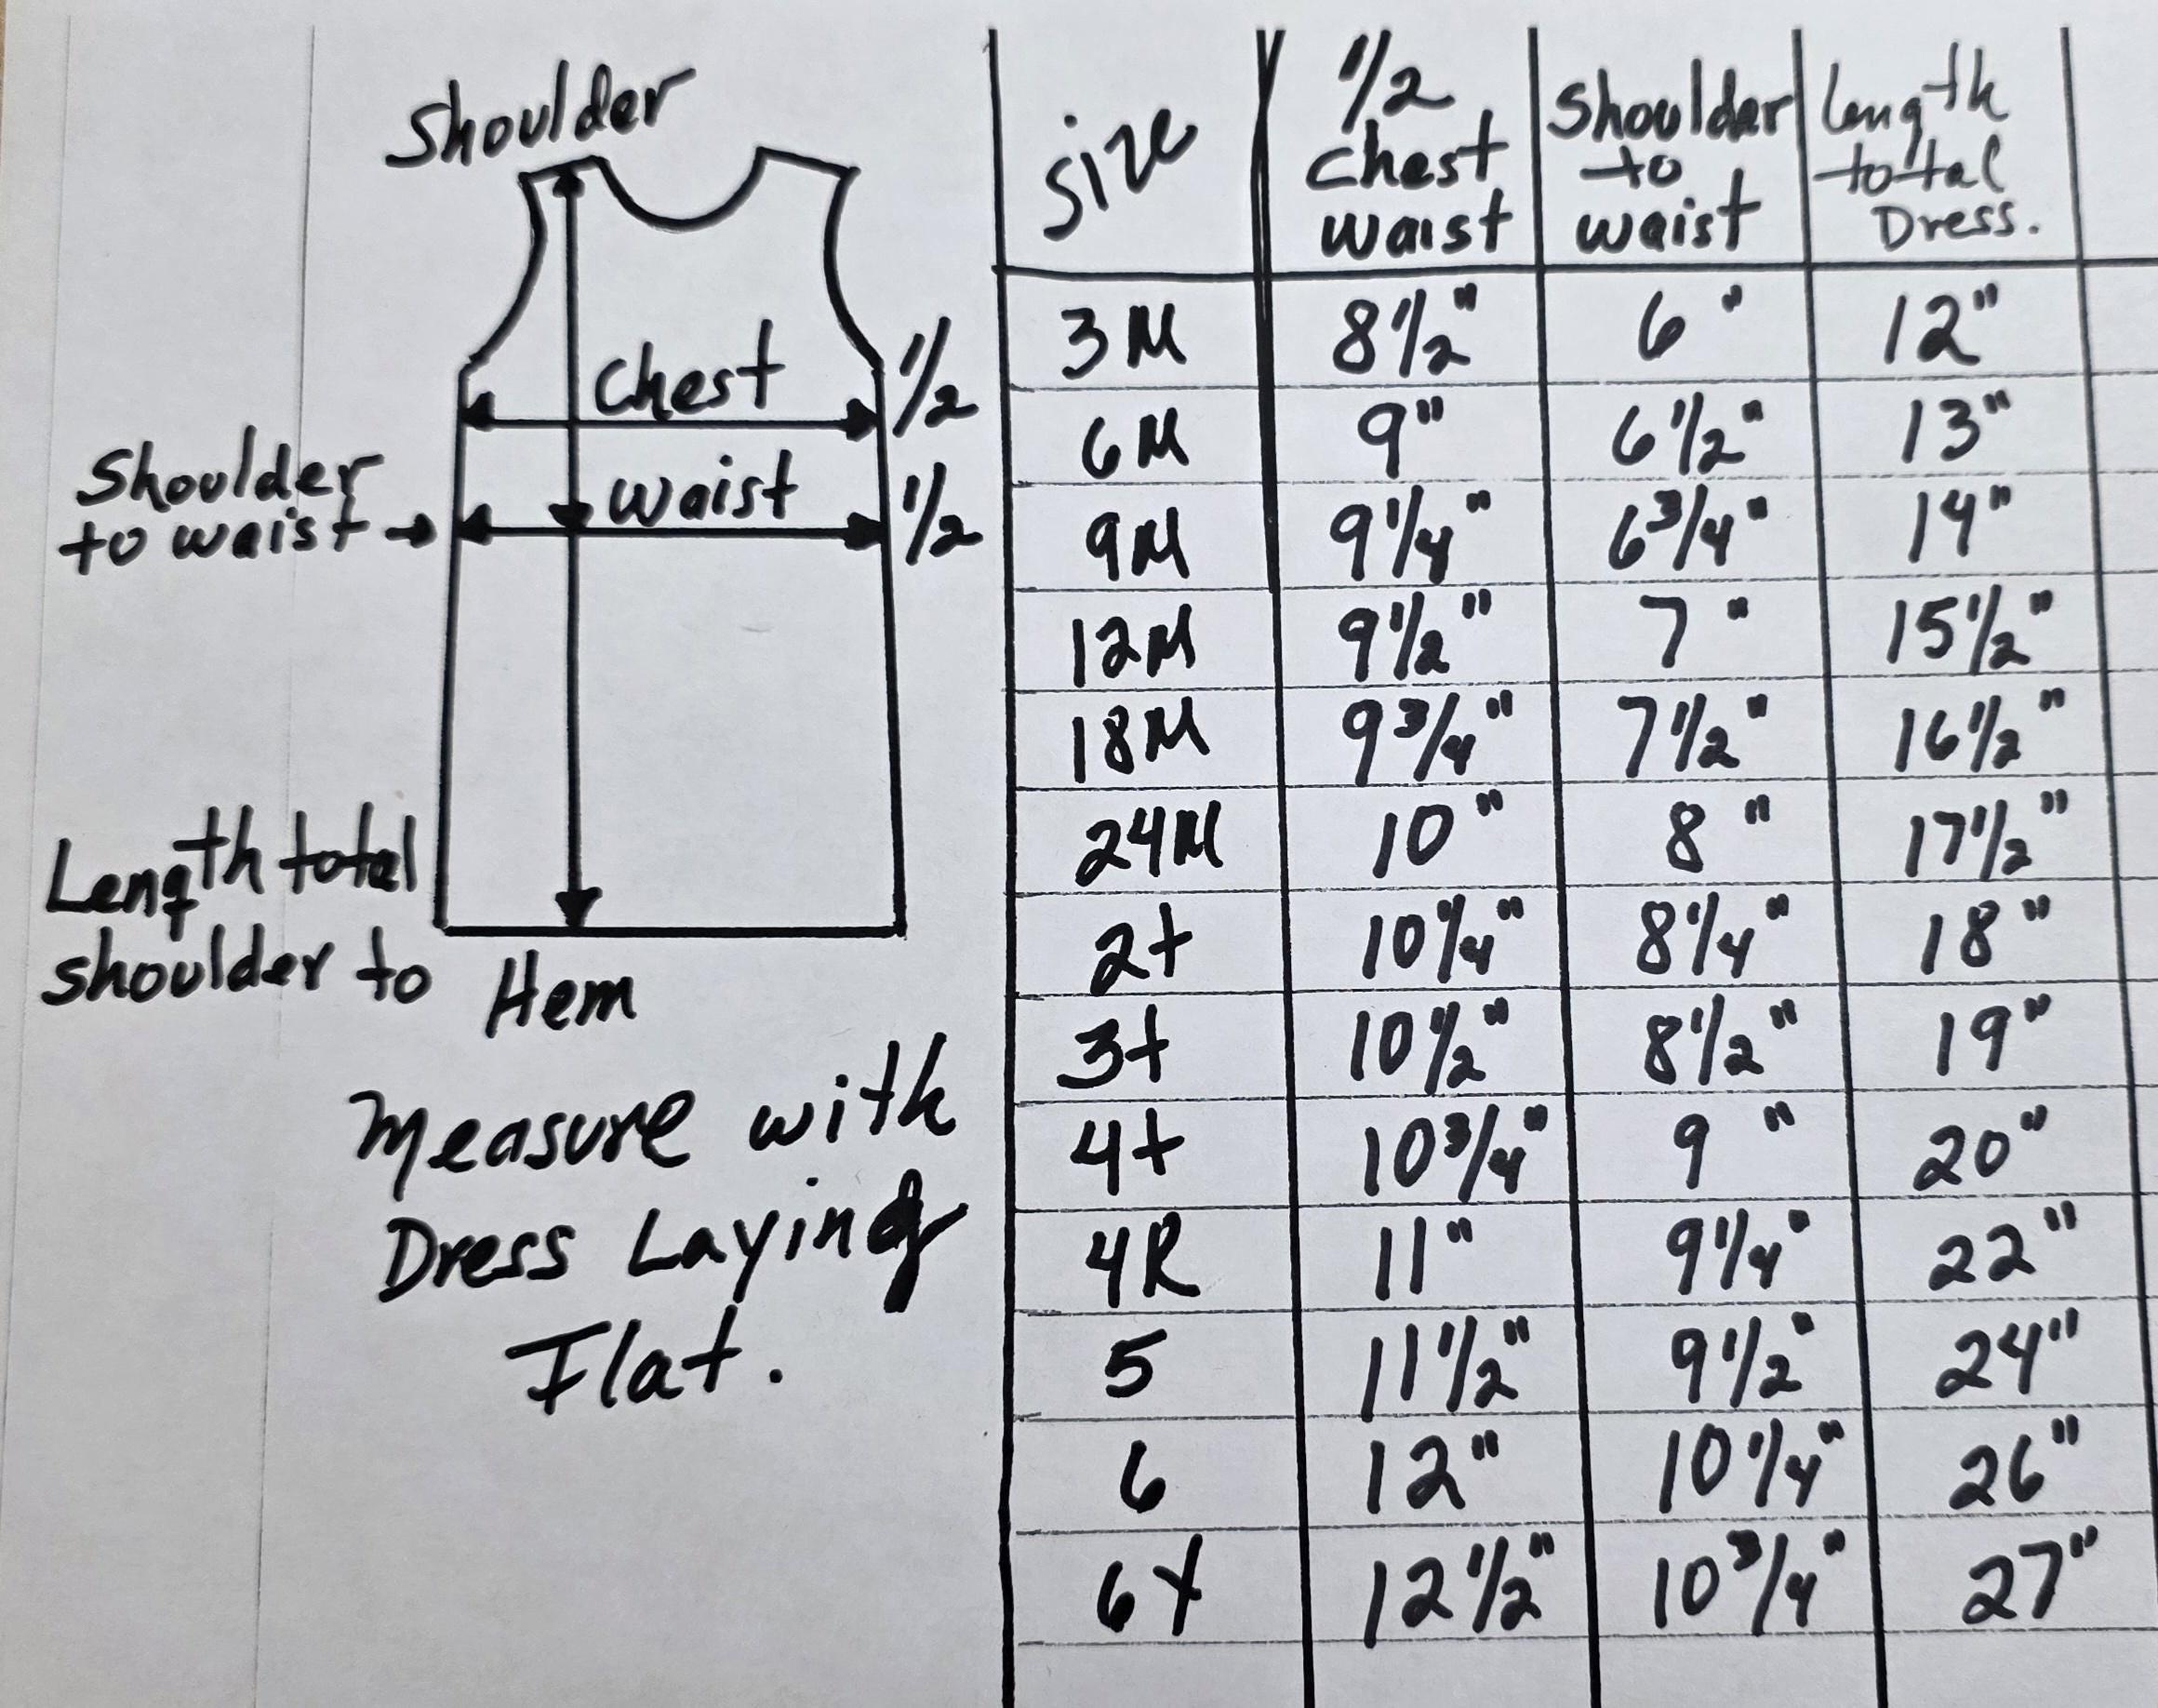 Shoulder
Chest 1/2
Shoulder
to waist → waist 1/2
Length total
shoulder to Hem
Measure with
Dress Laying
Flat.
Size 1/2 Chest waist Shoulder to waist Length total Dress.
3M 8 1/2" 6" 12"
6M 9" 6 1/2" 13"
9M 9 1/4" 6 3/4" 14"
12M 9 1/2" 7" 15 1/2"
18M 9 3/4" 7 1/2" 16 1/2"
24M 10" 8" 17 1/2"
2t 10 1/4" 8 1/4" 18"
3t 10 1/2" 8 1/2" 19"
4t 10 3/4" 9" 20"
4R 11" 9 1/4" 22"
5 11 1/2" 9 1/2" 24"
6 12" 10 1/4" 26"
6X 12 1/2" 10 3/4" 27"